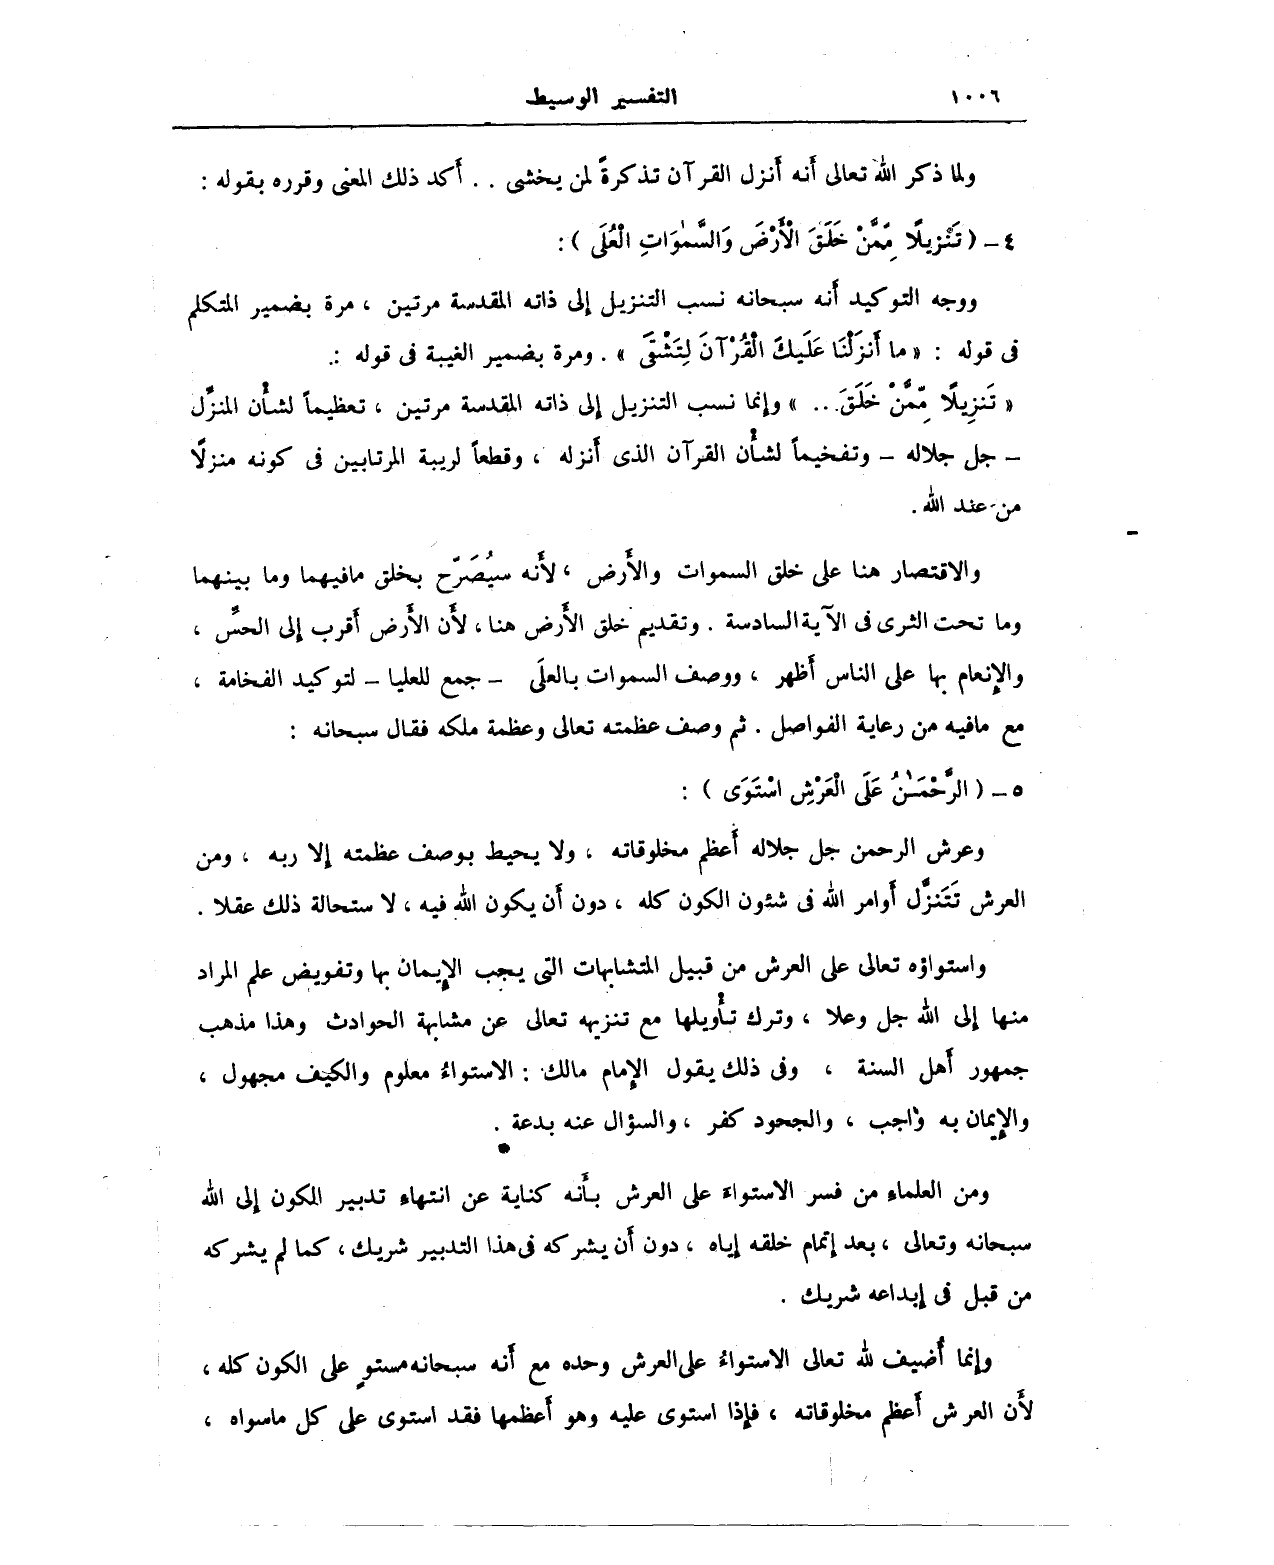 ١٠٠٦ التفسير الوسيط
ولما ذكر الله تعالى أنه أنزل القرآن تذكرةً لمن يخشى . . أكد ذلك المعنى وقرره بقوله :
٤ ـ ( تَنْزِيلًا مِّمَّنْ خَلَقَ الْأَرْضَ وَالسَّمٰوَاتِ الْعُلَى ) :
ووجه التوكيد أنه سبحانه نسب التنزيل إلى ذاته المقدسة مرتين ، مرة بضمير المتكلم
فى قوله : « ما أَنزَلْنَا عَلَيكَ الْقُرْآنَ لِتَشْقَى » . ومرة بضمير الغيبة فى قوله :
« تَنزِيلًا مِّمَّنْ خَلَقَ ... » وإنما نسب التنزيل إلى ذاته المقدسة مرتين ، تعظيماً لشأن المنزِّل
ـ جل جلاله ـ وتفخيماً لشأن القرآن الذى أنزله ، وقطعاً لريبة المرتابين فى كونه منزلًا
من عند الله .
والاقتصار هنا على خلق السموات والأرض ، لأنه سيُصَرّح بخلق مافيهما وما بينهما
وما تحت الثرى فى الآية السادسة . وتقديم خلق الأرض هنا ، لأن الأرض أقرب إلى الحسِّ ،
والإنعام بها على الناس أظهر ، ووصف السموات بالعلَى ـ جمع للعليا ـ لتوكيد الفخامة ،
مع مافيه من رعاية الفواصل . ثم وصف عظمته تعالى وعظمة ملكه فقال سبحانه :
٥ ـ ( الرَّحْمَـٰنُ عَلَى الْعَرْشِ اسْتَوَى ) :
وعرش الرحمن جل جلاله أعظم مخلوقاته ، ولا يحيط بوصف عظمته إلا ربه ، ومن
العرش تَتَنزَّل أوامر الله فى شئون الكون كله ، دون أن يكون الله فيه ، لا ستحالة ذلك عقلا .
واستواؤه تعالى على العرش من قبيل المتشابهات التى يجب الإيمان بها وتفويض علم المراد
منها إلى الله جل وعلا ، وترك تأويلها مع تنزيهه تعالى عن مشابهة الحوادث وهذا مذهب
جمهور أهل السنة ، وفى ذلك يقول الإمام مالك : الاستواءُ معلوم والكيف مجهول ،
والإيمان به واجب ، والجحود كفر ، والسؤال عنه بدعة .
ومن العلماء من فسر الاستواءَ على العرش بأنه كناية عن انتهاء تدبير الكون إلى الله
سبحانه وتعالى ، بعد إتمام خلقه إياه ، دون أن يشركه فى هذا التدبير شريك ، كما لم يشركه
من قبل فى إبداعه شريك .
وإنما أضيف لله تعالى الاستواءُ على العرش وحده مع أنه سبحانه مستوٍ على الكون كله ،
لأن العرش أعظم مخلوقاته ، فإذا استوى عليه وهو أعظمها فقد استوى على كل ماسواه ،